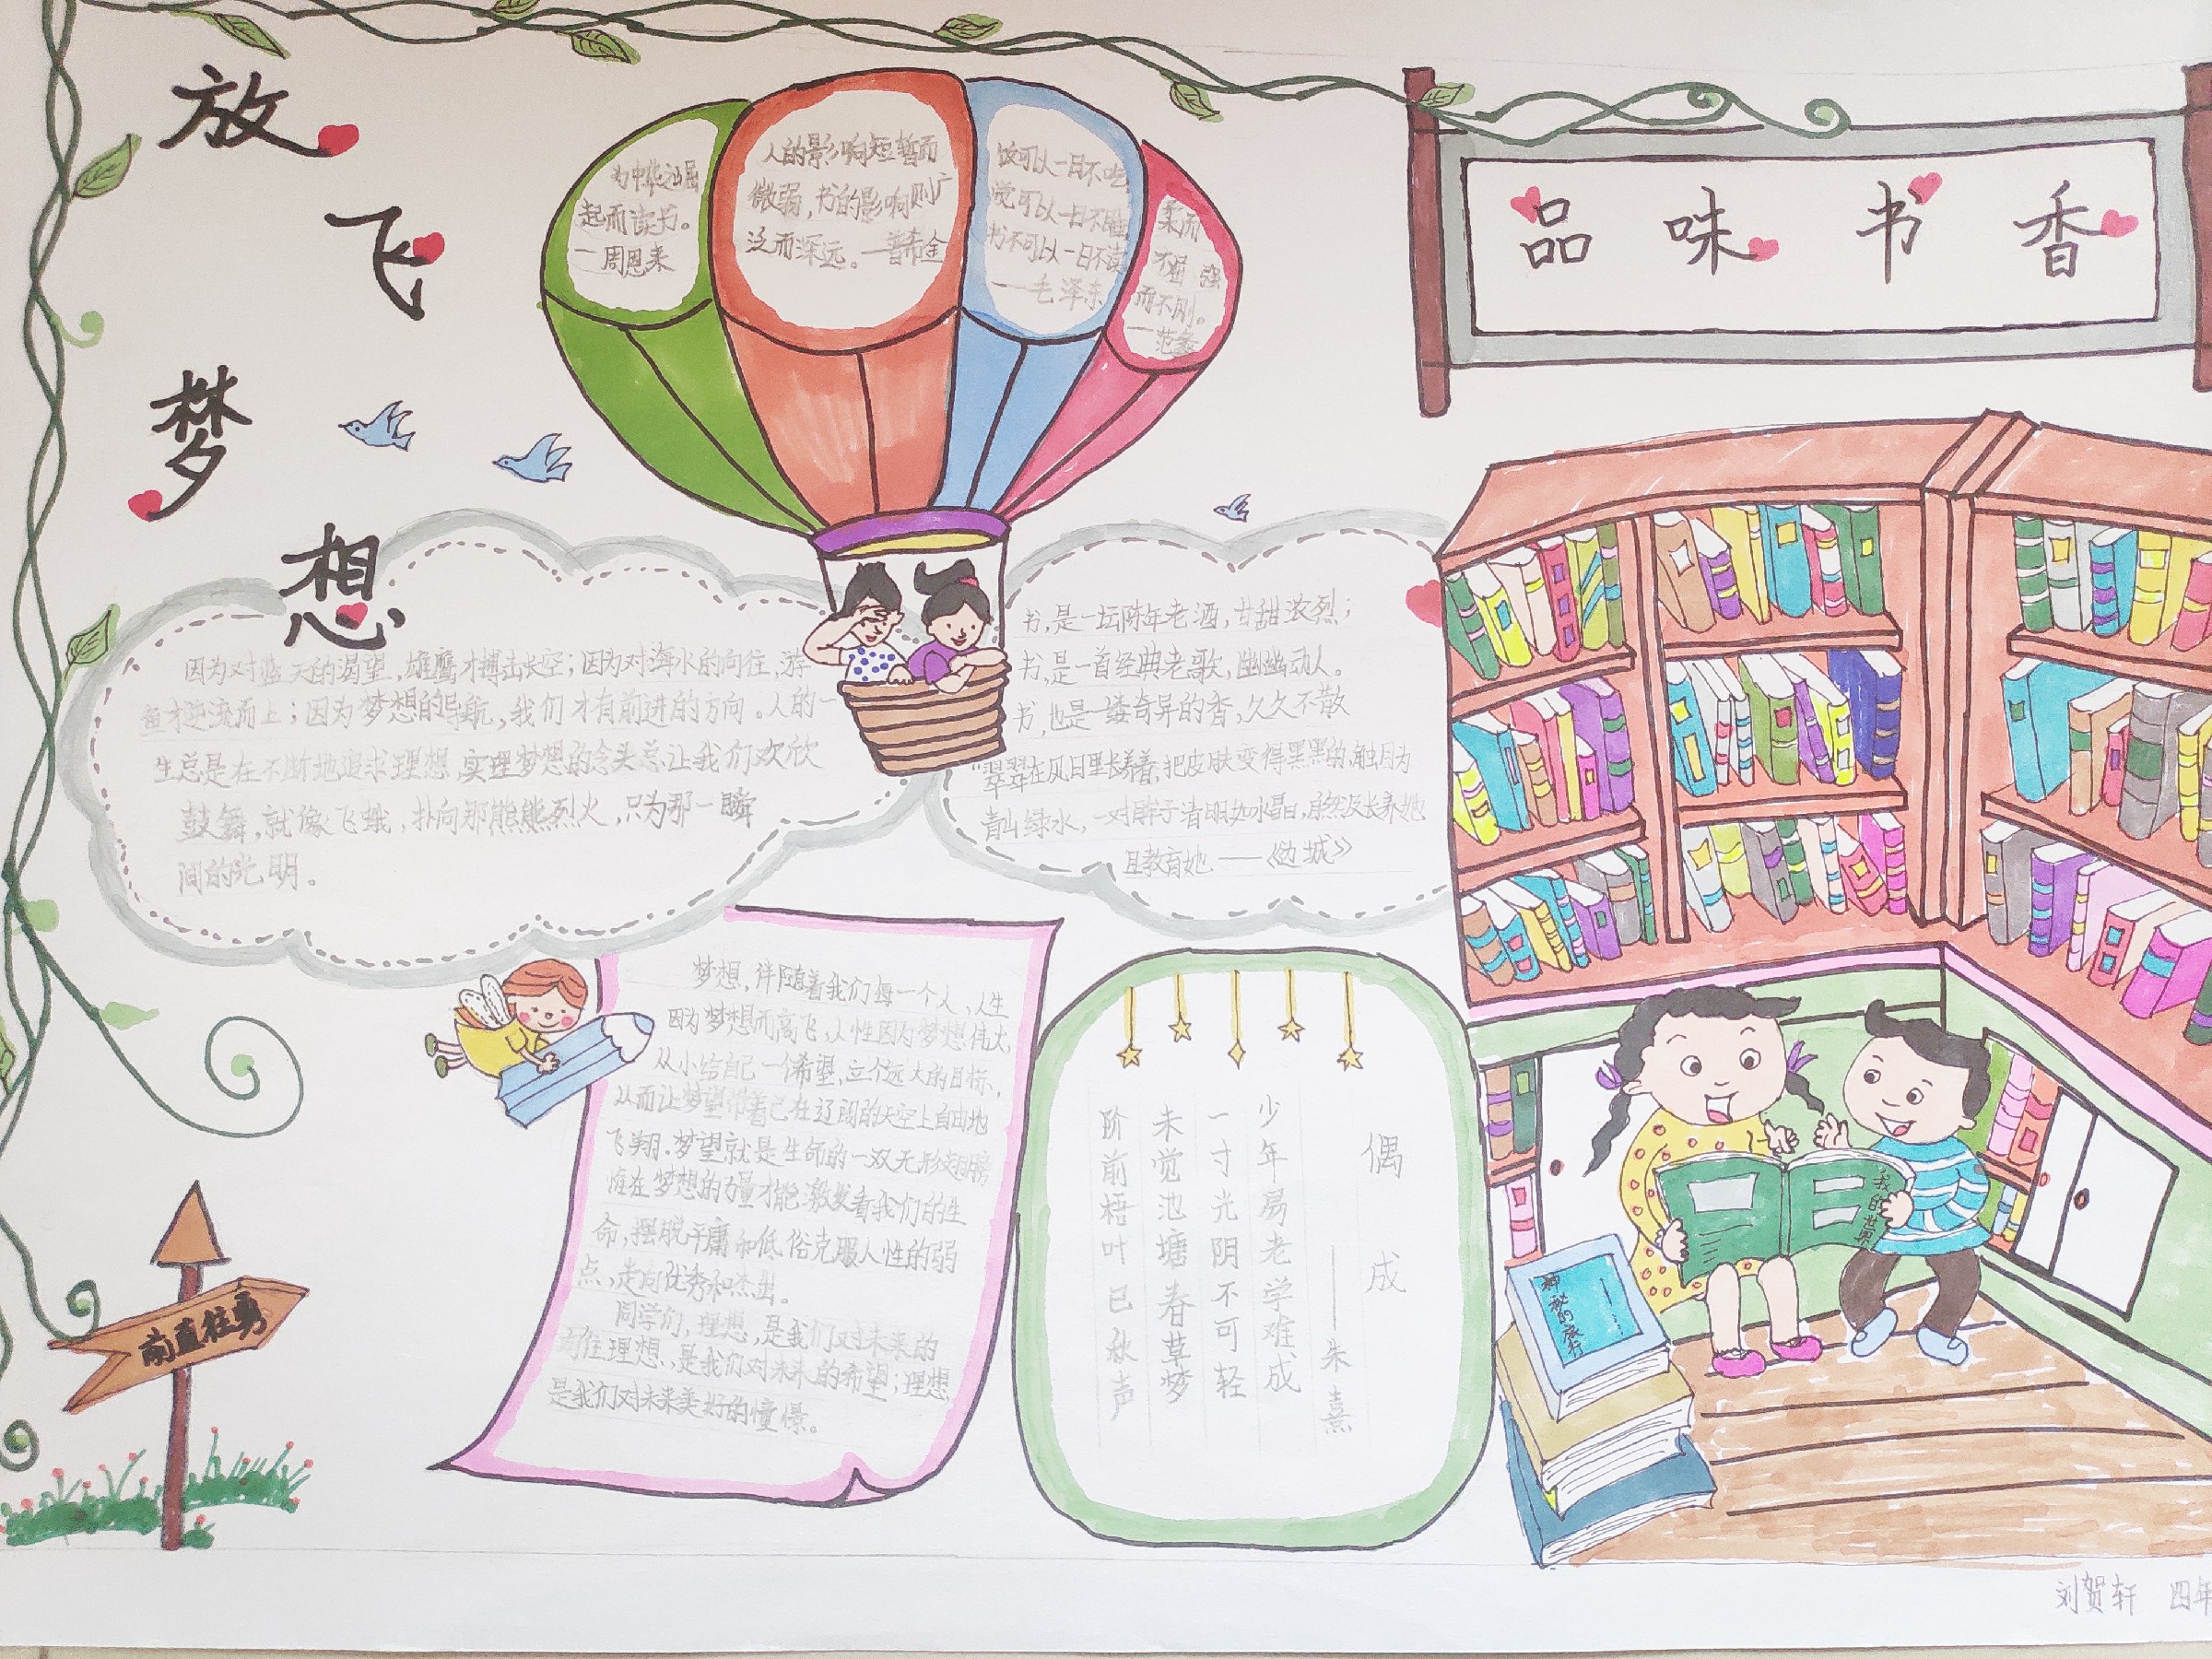 放飞梦想
为中华之崛
起而读书。
—周恩来
人的影响短暂而
微弱，书的影响则广
泛而深远。—普希金
饭可以一日不吃
觉可以一日不睡
书不可以一日不读
——毛泽东
柔而
不屈 强
而不刚。
—范蠡
品味书香
因为对蓝天的渴望，雄鹰才搏击长空；因为对海水的向往，游
鱼才逆流而上；因为梦想的导航，我们才有前进的方向。人的一
生总是在不断地追求理想，实理梦想的念头总让我们欢欣
鼓舞，就像飞蛾，扑向那熊熊烈火，只为那一瞬
间的光明。
书，是一坛陈年老酒，甘甜浓烈；
书，是一首经典老歌，幽幽动人。
书，也是一缕奇异的香，久久不散
"翠翠在风日里长养着，把皮肤变得黑黑的，触目为
青山绿水，一对眸子清明如水晶，自然及长养她
且教育她——《边城》
梦想，伴随着我们每一个人，人生
因为梦想而高飞，人性因为梦想伟大，
从小给自己一个希望，立个远大的目标，
从而让梦望带着己在辽阔的天空上自由地
飞翔.梦望就是生命的一双无形翅膀
惟在梦想的力量才能激发着我们的生
命，摆脱平庸和低俗克服人性的弱
点，走向优秀和杰出。
同学们，理想，是我们对未来的
理想，是我们对未来的希望；理想
是我们对未来美好的憧憬。
偶成
——朱熹
少年易老学难成
一寸光阴不可轻
未觉池塘春草梦
阶前梧叶已秋声
我的世界
神秘的旅行
前直往勇
刘贺轩 四年